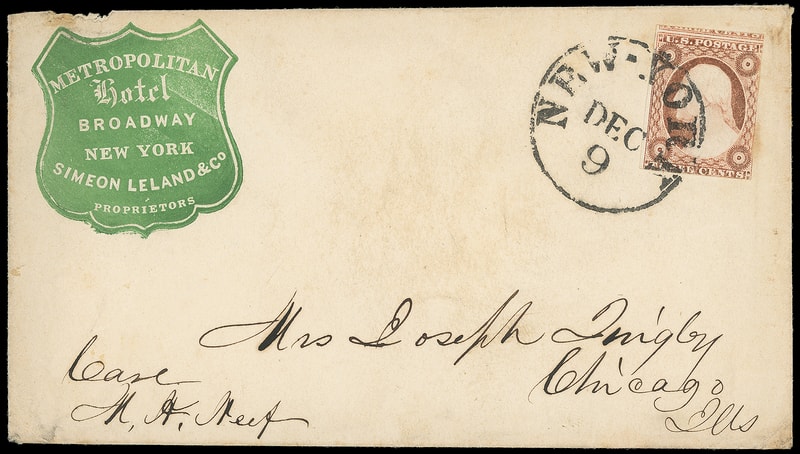 METROPOLITAN
Hotel
BROADWAY
NEW YORK
SIMEON LELAND & Co
PROPRIETORS
NEW-YORK
DEC
9
U.S. POSTAGE
THREE CENTS
Mrs Joseph Quigby
Chicago
Ills
Care
M. H. Neef